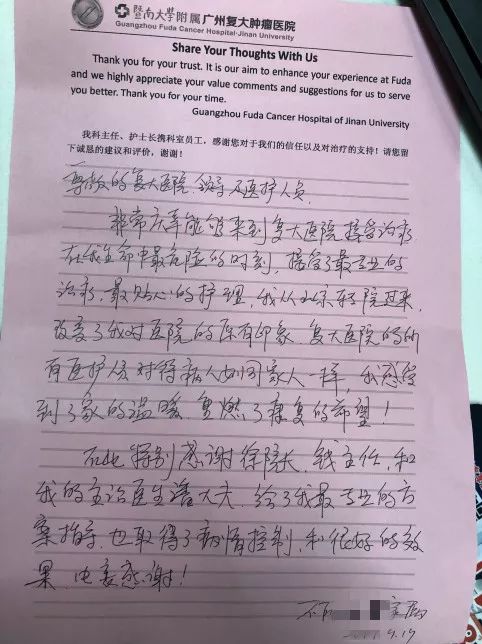 暨南大學附属广州复大肿瘤医院
Guangzhou Fuda Cancer Hospital·Jinan University
Share Your Thoughts With Us
Thank you for your trust. It is our aim to enhance your experience at Fuda
and we highly appreciate your value comments and suggestions for us to serve
you better. Thank you for your time.
Guangzhou Fuda Cancer Hospital of Jinan University
我科主任、护士长携科室员工，感谢您对于我们的信任以及对治疗的支持！请您留
下诚恳的建议和评价，谢谢！
尊敬的复大医院领导及医护人员.
非常庆幸能够来到复大医院接受治疗
在我生命中最危险的时刻，接受了最专业的
治疗，最贴心的护理，我从北京转院过来，
改变了我对医院的原有印象，复大医院的所
有医护人员对待病人如同家人一样，我感受
到了家的温暖，重燃了康复的希望！
在此特别感谢徐院长，钱主任，和
我的主治医生潘大夫，给了我最专业的方
案指导，也取得了病情控制，和很好的效
果，由衷感谢！
9.19